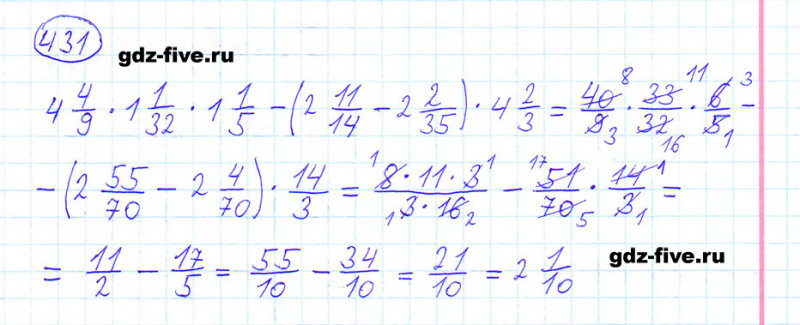 431
gdz-five.ru
4 4/9 · 1 1/32 · 1 1/5 - (2 11/14 - 2 2/35) · 4 2/3 = 40/9 · 33/32 · 6/5 -
8 3 11 16 3 1
- (2 55/70 - 2 4/70) · 14/3 = 8·11·3/3·16 - 51/70 · 14/3 =
1 1 1 2 17 5 1 1
= 11/2 - 17/5 = 55/10 - 34/10 = 21/10 = 2 1/10
gdz-five.ru